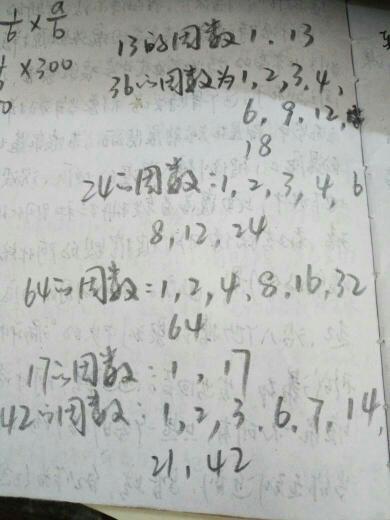 1/6 × a/b
× 300
13的因数 1. 13
36的因数为1,2,3.4,
6. 9. 12,
18
24的因数:1,2,3,4,6
8,12,24
64的因数:1,2,4,8.16,32
64
17的因数:1,17
42的因数:1,2,3.6,7,14,
21,42